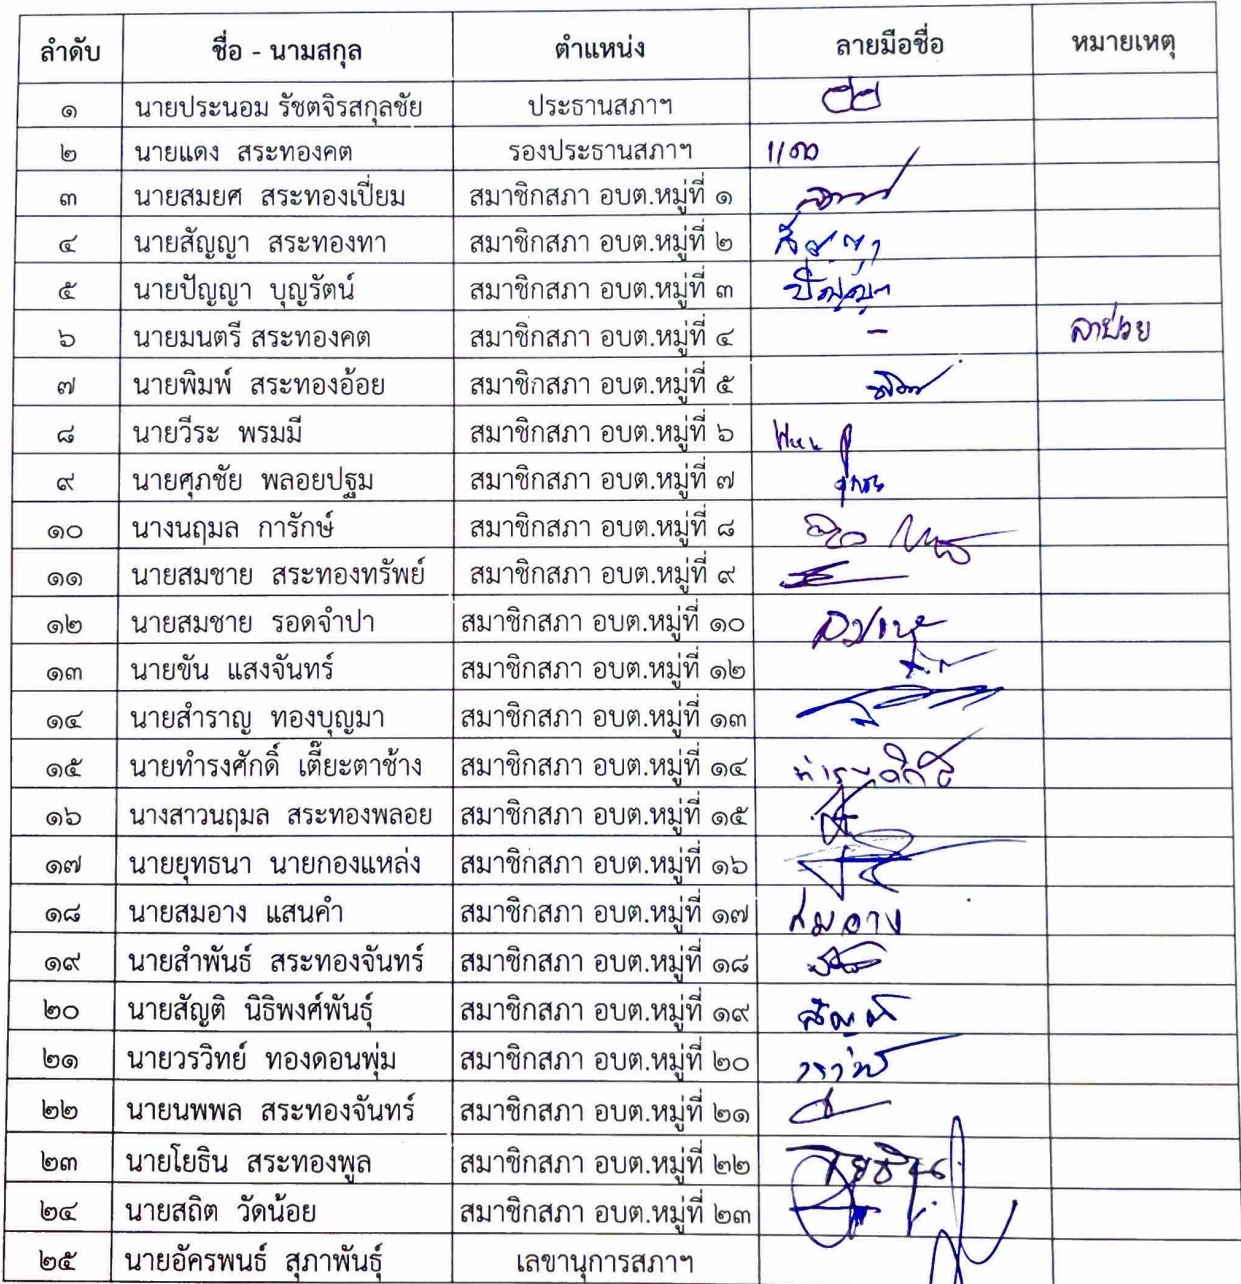 ลำดับ ชื่อ - นามสกุล ตำแหน่ง ลายมือชื่อ หมายเหตุ
๑ นายประนอม รัชตจิรสกุลชัย ประธานสภาฯ
๒ นายแดง สระทองคต รองประธานสภาฯ แดง
๓ นายสมยศ สระทองเปี่ยม สมาชิกสภา อบต.หมู่ที่ ๑
๔ นายสัญญา สระทองทา สมาชิกสภา อบต.หมู่ที่ ๒ สัญญา
๕ นายปัญญา บุญรัตน์ สมาชิกสภา อบต.หมู่ที่ ๓ ปัญญา
๖ นายมนตรี สระทองคต สมาชิกสภา อบต.หมู่ที่ ๔ - ลาป่วย
๗ นายพิมพ์ สระทองอ้อย สมาชิกสภา อบต.หมู่ที่ ๕
๘ นายวีระ พรมมี สมาชิกสภา อบต.หมู่ที่ ๖
๙ นายศุภชัย พลอยปฐม สมาชิกสภา อบต.หมู่ที่ ๗
๑๐ นางนฤมล การักษ์ สมาชิกสภา อบต.หมู่ที่ ๘
๑๑ นายสมชาย สระทองทรัพย์ สมาชิกสภา อบต.หมู่ที่ ๙
๑๒ นายสมชาย รอดจำปา สมาชิกสภา อบต.หมู่ที่ ๑๐
๑๓ นายขัน แสงจันทร์ สมาชิกสภา อบต.หมู่ที่ ๑๒
๑๔ นายสำราญ ทองบุญมา สมาชิกสภา อบต.หมู่ที่ ๑๓
๑๕ นายทำรงศักดิ์ เตี๊ยะตาช้าง สมาชิกสภา อบต.หมู่ที่ ๑๔
๑๖ นางสาวนฤมล สระทองพลอย สมาชิกสภา อบต.หมู่ที่ ๑๕
๑๗ นายยุทธนา นายกองแหล่ง สมาชิกสภา อบต.หมู่ที่ ๑๖
๑๘ นายสมอาง แสนคำ สมาชิกสภา อบต.หมู่ที่ ๑๗ สมอาง
๑๙ นายสำพันธ์ สระทองจันทร์ สมาชิกสภา อบต.หมู่ที่ ๑๘
๒๐ นายสัญติ นิธิพงศ์พันธุ์ สมาชิกสภา อบต.หมู่ที่ ๑๙ สัญติ
๒๑ นายวรวิทย์ ทองดอนพุ่ม สมาชิกสภา อบต.หมู่ที่ ๒๐
๒๒ นายนพพล สระทองจันทร์ สมาชิกสภา อบต.หมู่ที่ ๒๑
๒๓ นายโยธิน สระทองพูล สมาชิกสภา อบต.หมู่ที่ ๒๒
๒๔ นายสถิต วัดน้อย สมาชิกสภา อบต.หมู่ที่ ๒๓
๒๕ นายอัครพนธ์ สุภาพันธุ์ เลขานุการสภาฯ